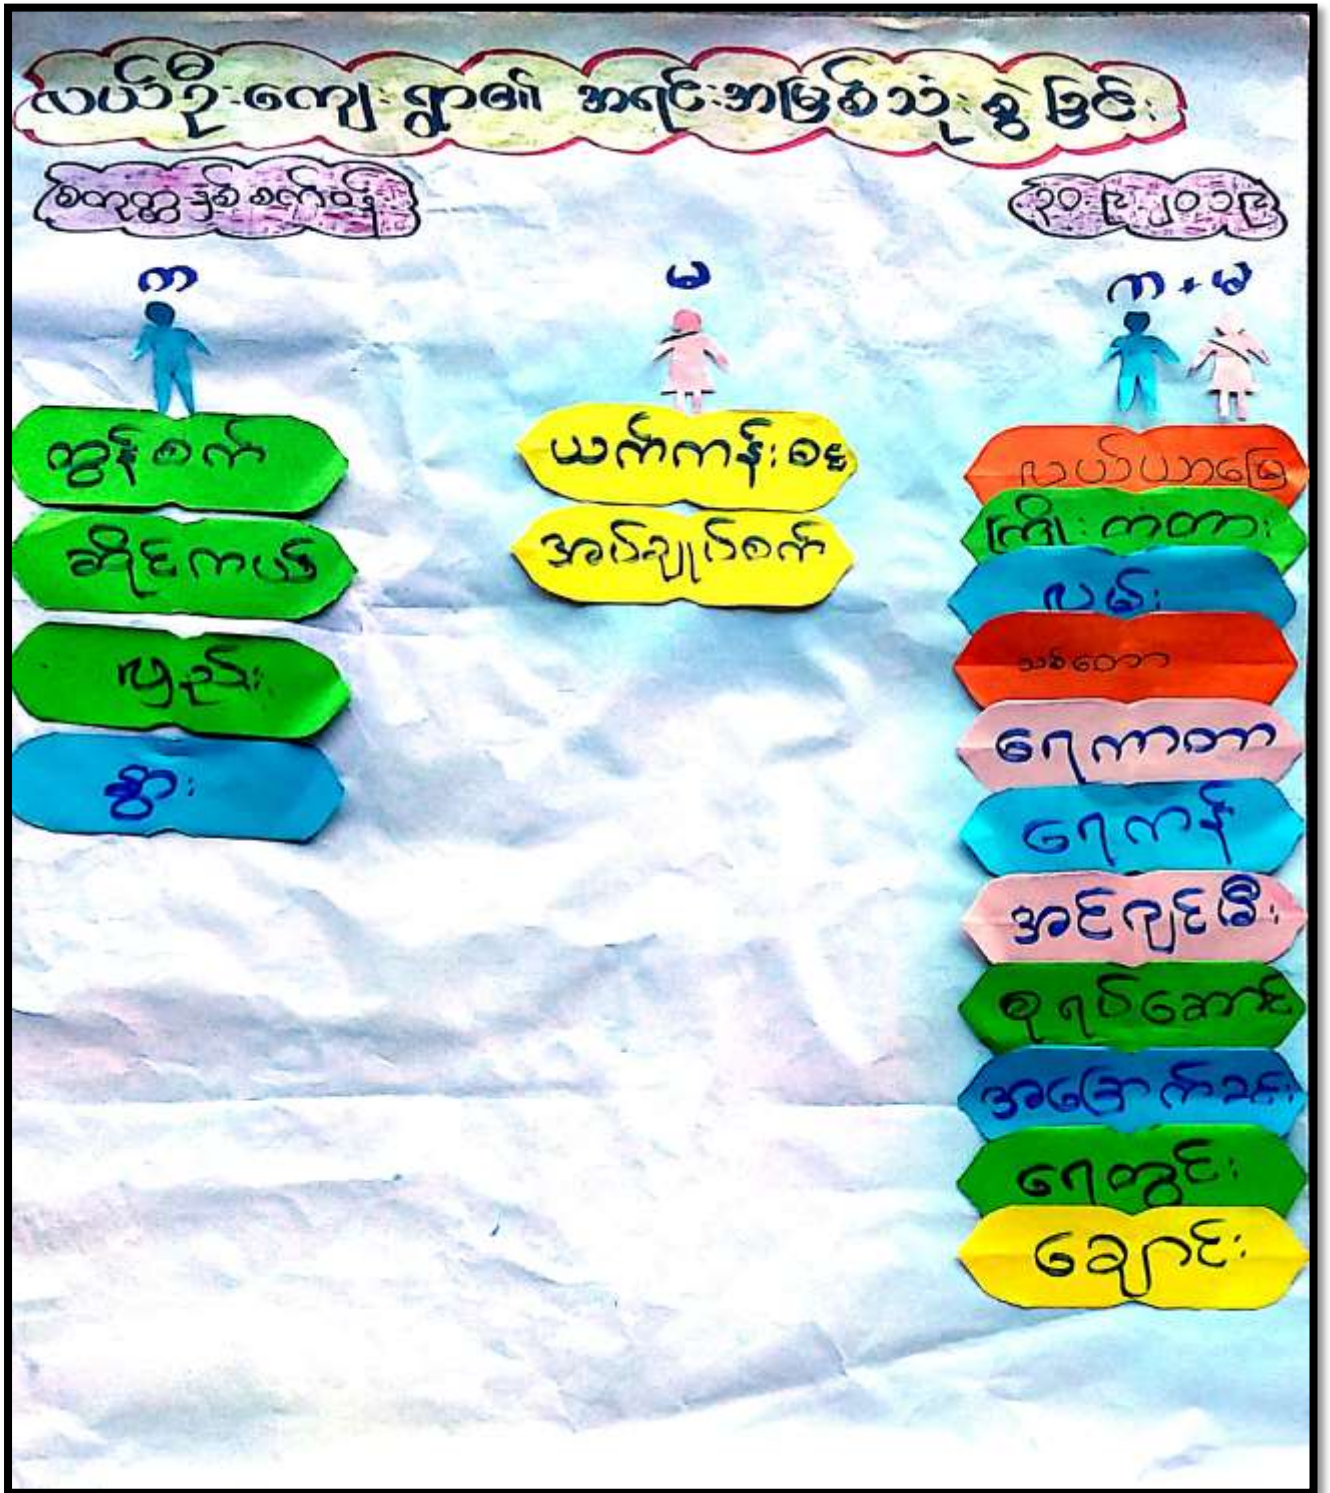 လယ်ဦးကျေးရွာ၏ အရင်းအမြစ်သုံးစွဲခြင်း
စတုတ္ထနှစ်စက်ဝန်း
၃၀.၉.၂၀၁၉
က
မ
က + မ
ထွန်စက်
ဆိုင်ကယ်
လှည်း
နွား
ယက်ကန်းစင်
အပ်ချုပ်စက်
လယ်ယာမြေ
ကြိုးတံတား
လမ်း
သစ်တော
ရေကာတာ
ရေကန်
အင်ဂျင်မီး
စုရပ်ဆောင်
အခြောက်ခန်း
ရေတွင်း
ချောင်း